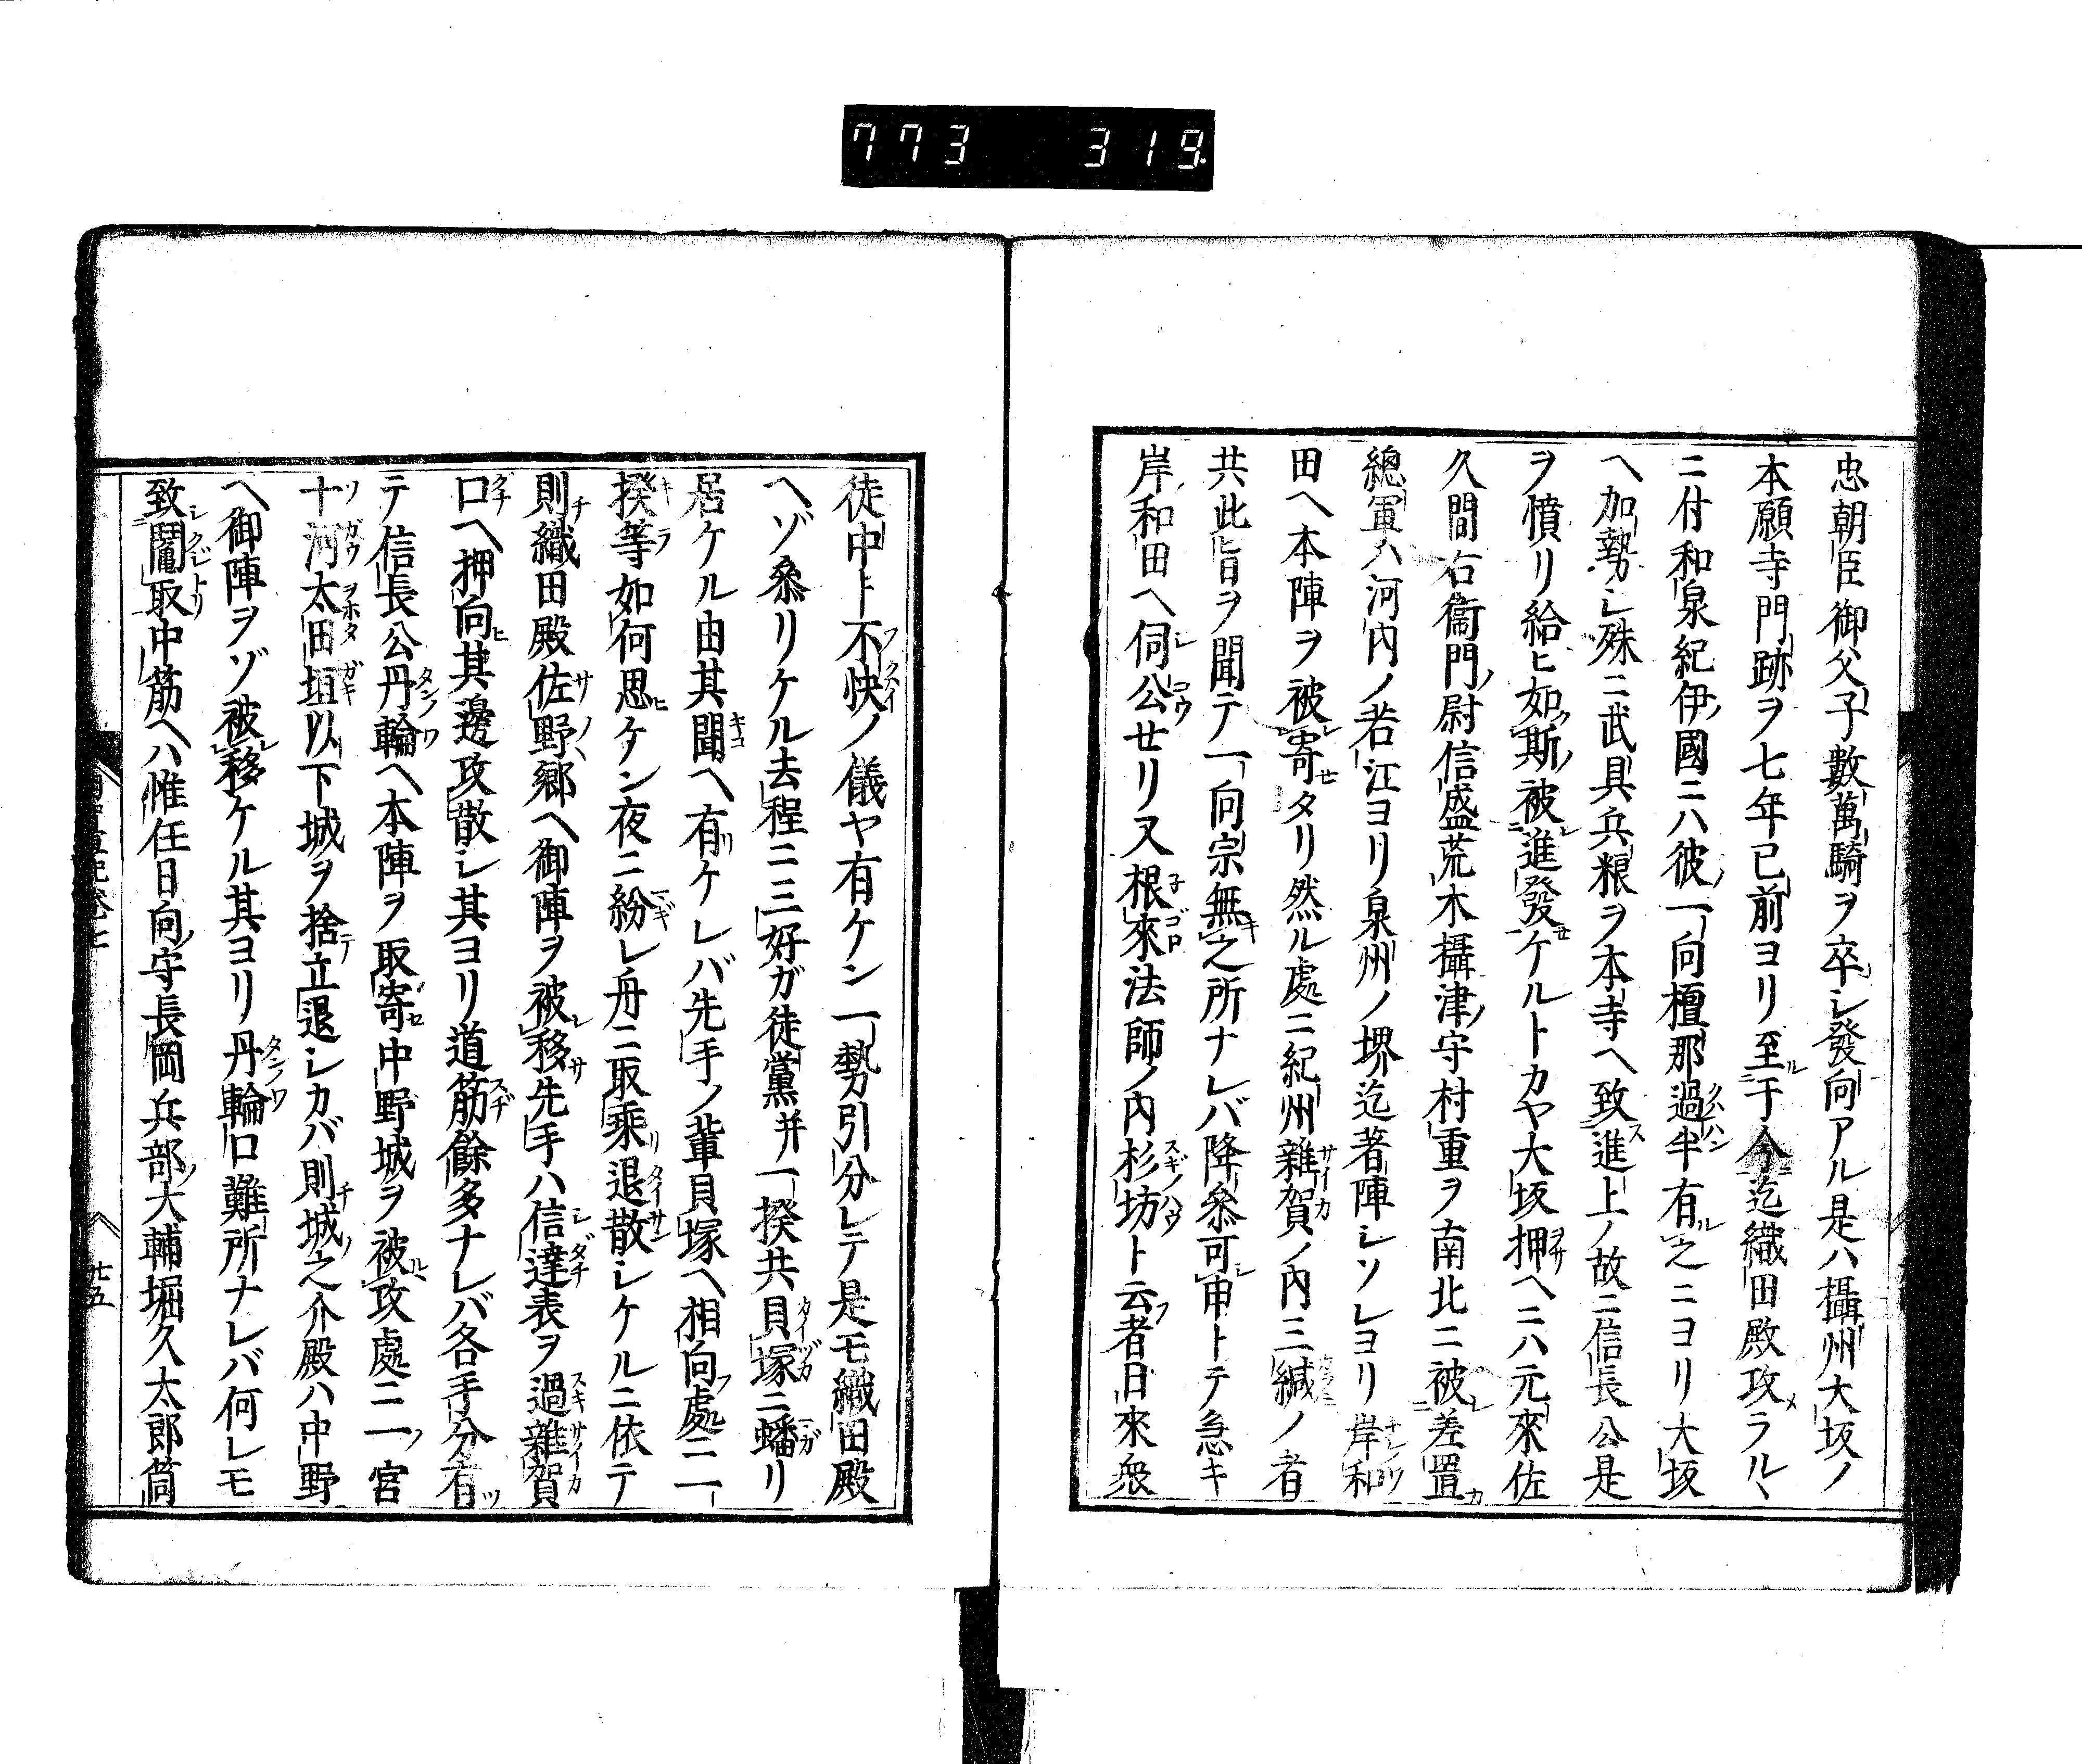 773 319
忠朝臣御父子數萬騎ヲ卒シ發向アル是ハ攝州大坂ノ
本願寺門跡ヲ七年已前ヨリ至于今迄織田殿攻ラルヽ
ニ付和泉紀伊國ニハ彼一向檀那過半有之ニヨリ大坂
ヘ加勢シ殊ニ武具兵粮ヲ本寺ヘ致進上ノ故ニ信長公是
ヲ憤リ給ヒ如斯被進發ケルトカヤ大坂押ヘニハ元來佐
久間右衞門尉信盛荒木攝津守村重ヲ南北ニ被差置
總軍ハ河内ノ若江ヨリ泉州ノ堺迄著陣シソレヨリ岸和
田ヘ本陣ヲ被寄タリ然ル處ニ紀州雜賀ノ内三緘ノ者
共此旨ヲ聞テ一向宗無之所ナレバ降參可申トテ急キ
岸和田ヘ伺公せリ又根來法師ノ内杉坊ト云者日來衆
徒中ト不快ノ儀ヤ有ケン一勢引分レテ是モ織田殿
ヘゾ參リケル去程ニ三好ガ徒黨并一揆共貝塚ニ蟠リ
居ケル由其聞ヘ有ケレバ先手ノ輩貝塚ヘ相向處ニ一
揆等如何思ケン夜ニ紛レ舟ニ取乘退散シケルニ依テ
則織田殿佐野郷ヘ御陣ヲ被移先手ハ信達表ヲ過雜賀
口ヘ押向其邊攻散シ其ヨリ道筋餘多ナレバ各手分有
テ信長公丹輪ヘ本陣ヲ取寄中野城ヲ被攻處ニ一宮
十河太田垣以下城ヲ捨立退シカバ則城之介殿ハ中野
ヘ御陣ヲゾ被移ケル其ヨリ丹輪口難所ナレバ何レモ
致鬮取中筋ヘハ惟任日向守長岡兵部大輔堀久太郎筒
廿五